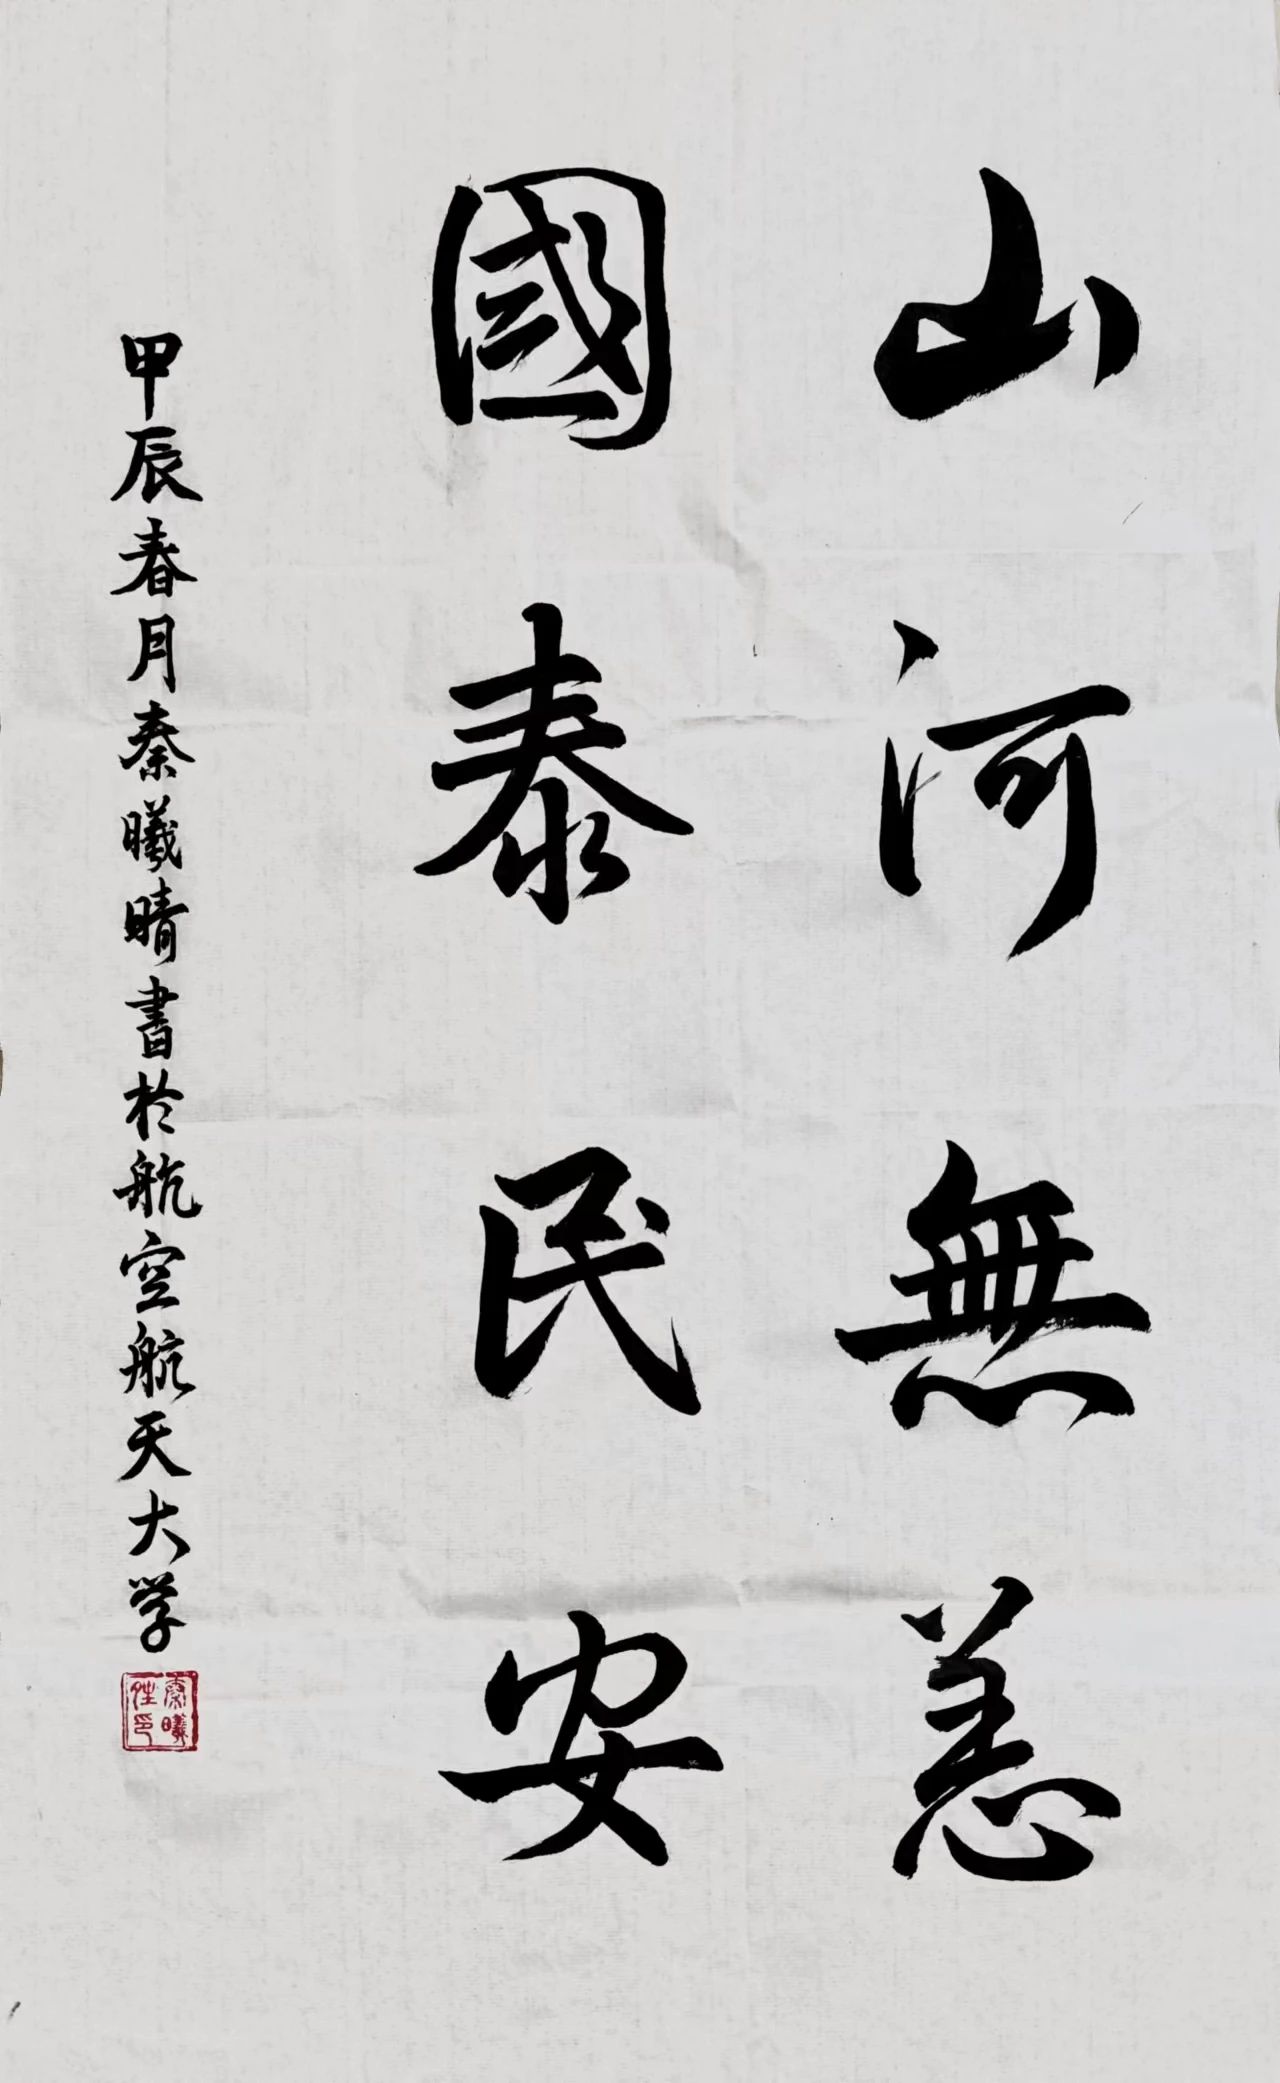 山河無恙
國泰民安
甲辰春月秦曦晴書於航空航天大学